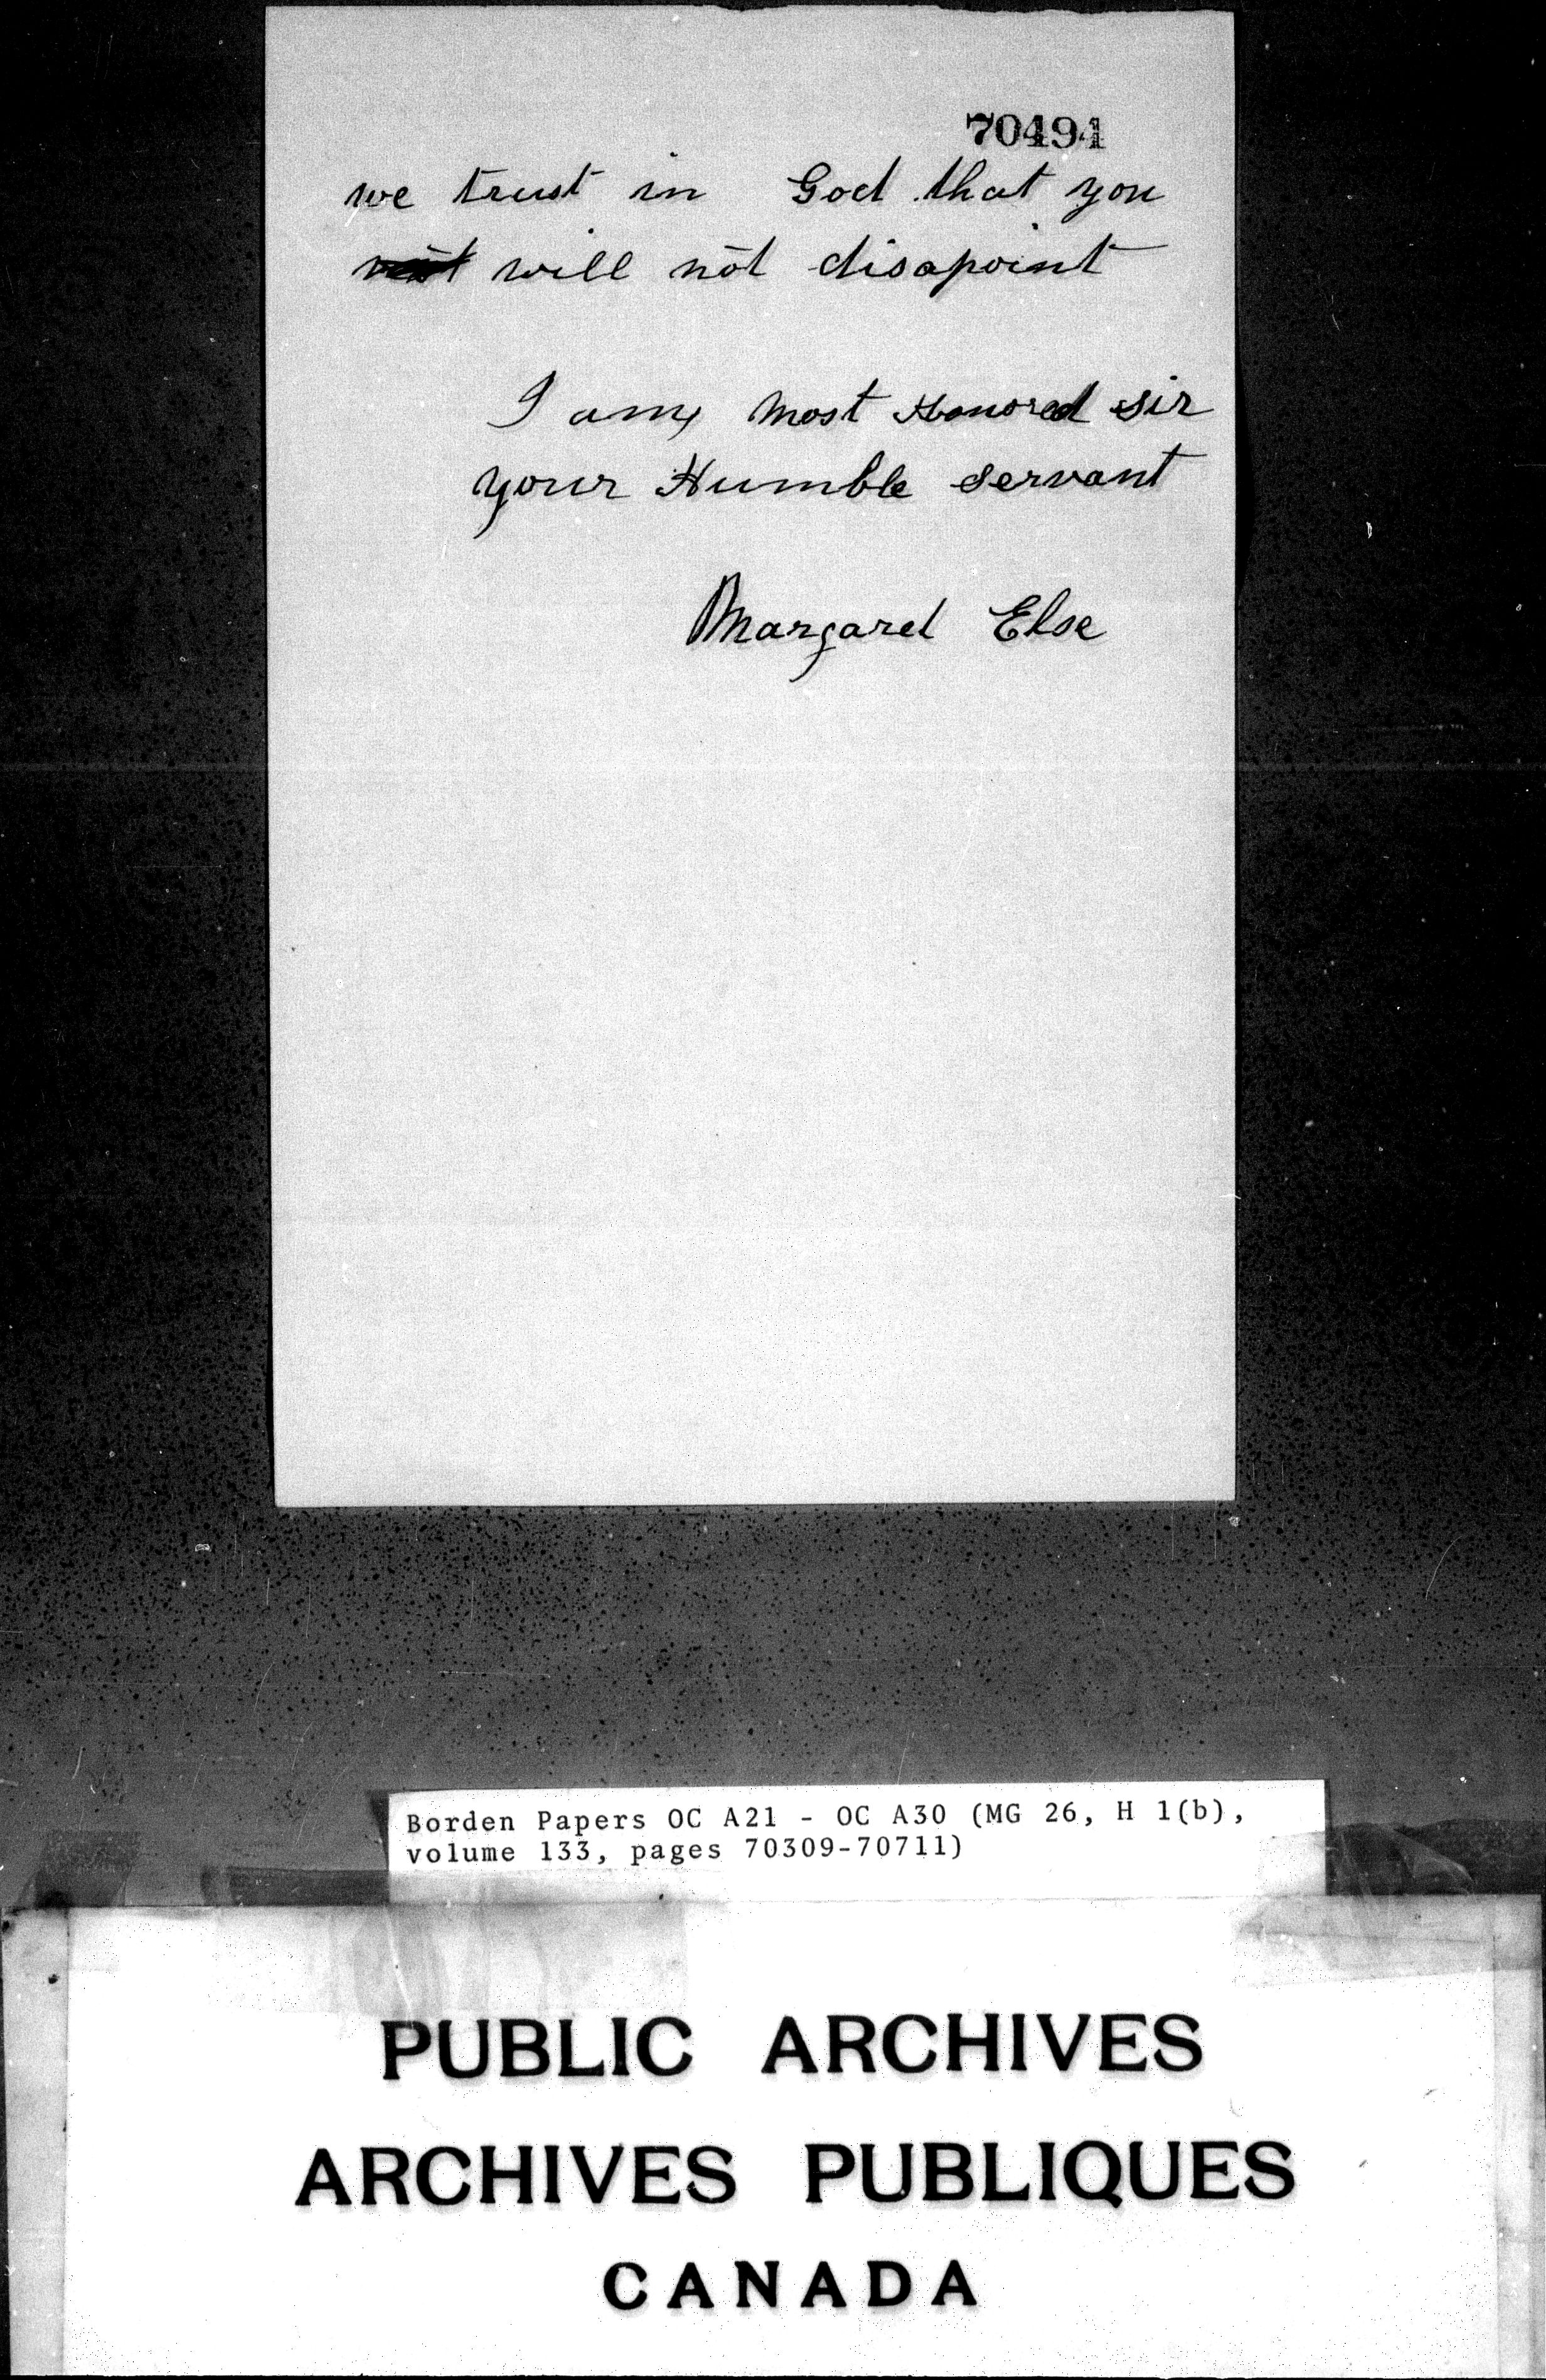 70494
we trust in God that you
will not disapoint
I am, most Honored sir
your Humble servant
Margaret Else
Borden Papers OC A21 - OC A30 (MG 26, H 1(b),
volume 133, pages 70309-70711)
PUBLIC ARCHIVES
ARCHIVES PUBLIQUES
CANADA